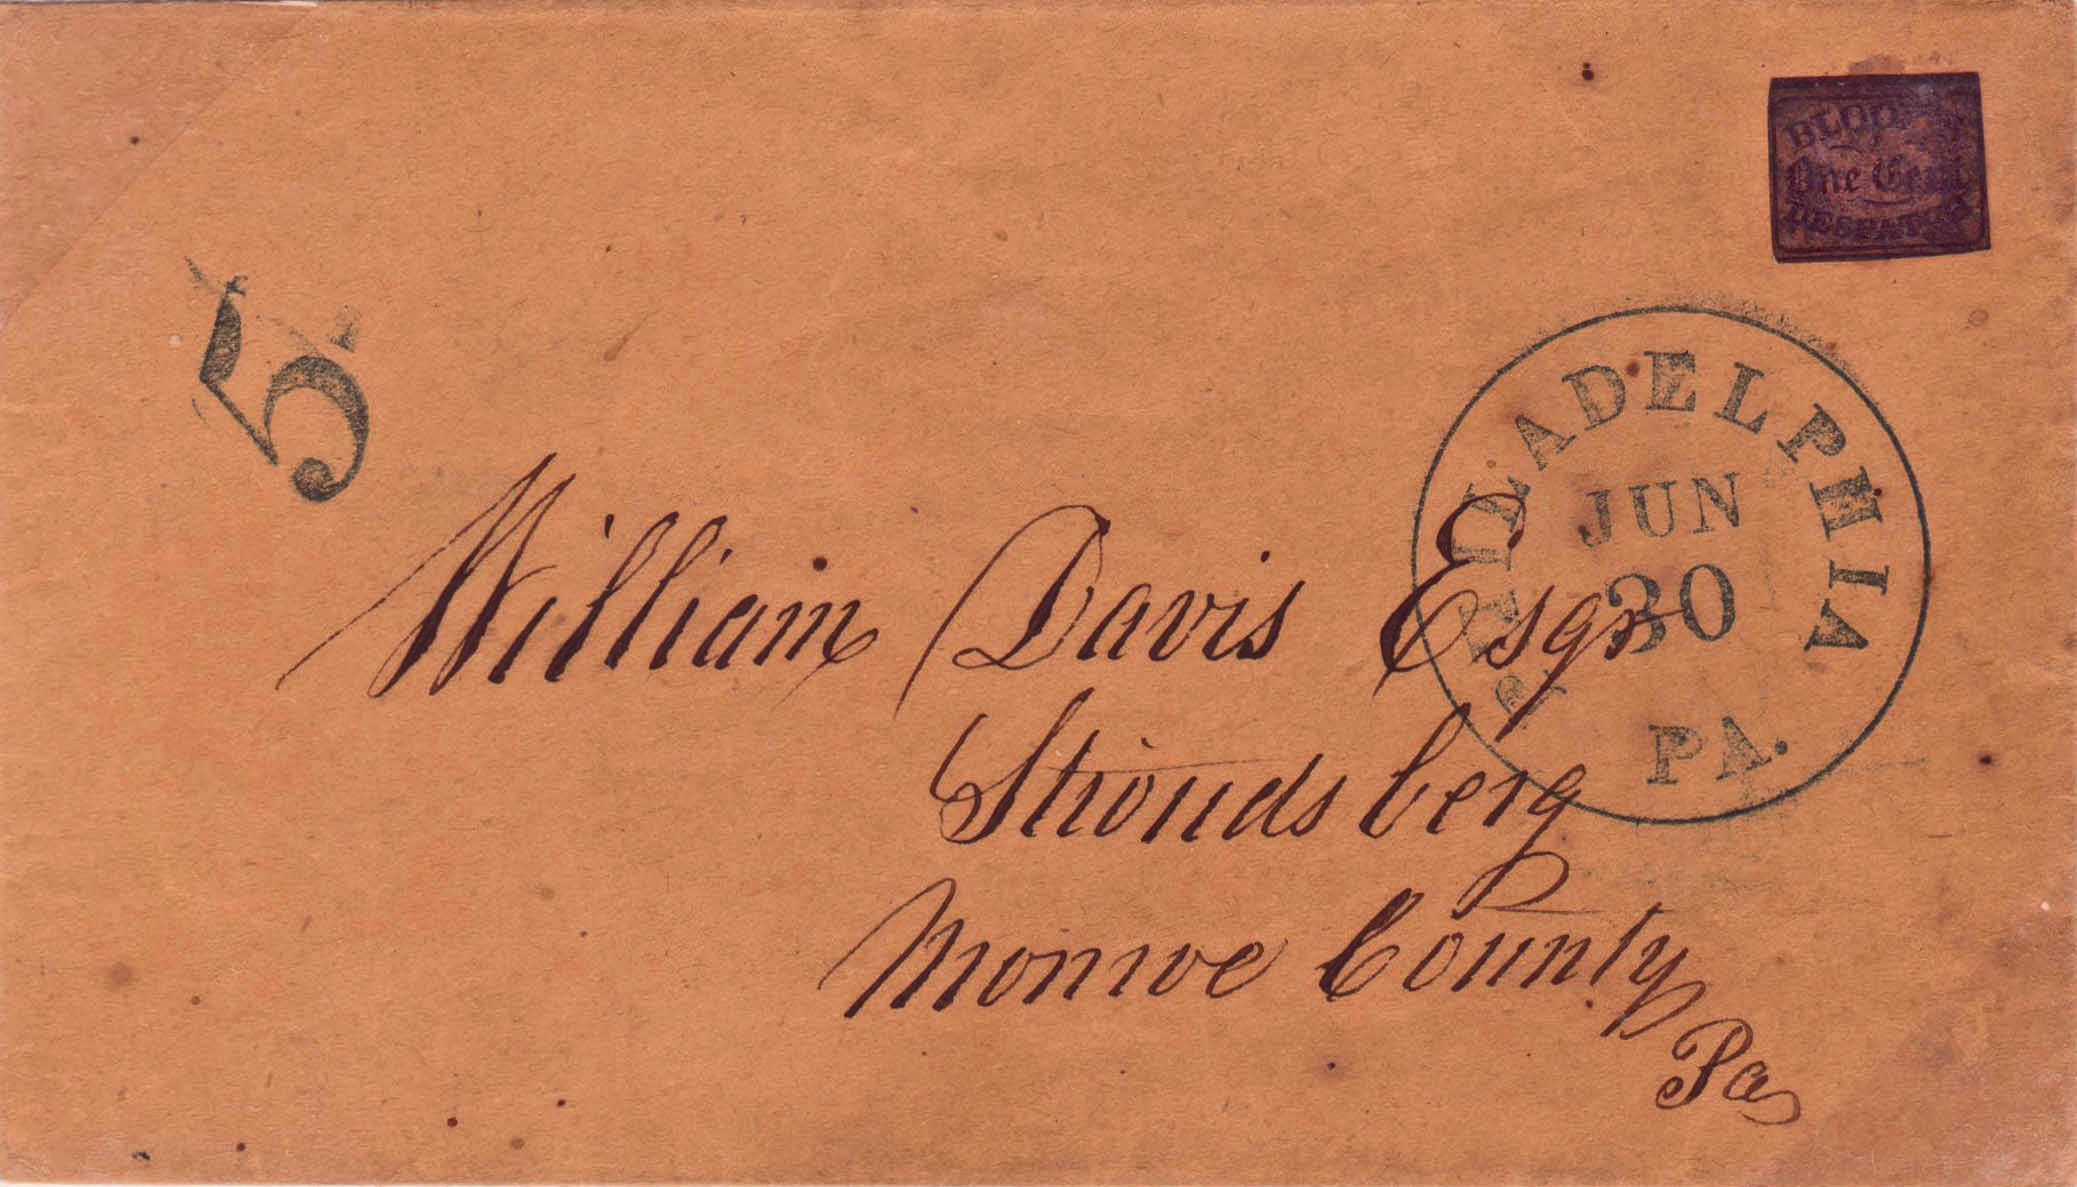 BLOOD'S
One Cent
DESPATCH
5
PHILADELPHIA
JUN
30
PA.
William Davis Esqr
Stroudsberg
Monroe County
Pa